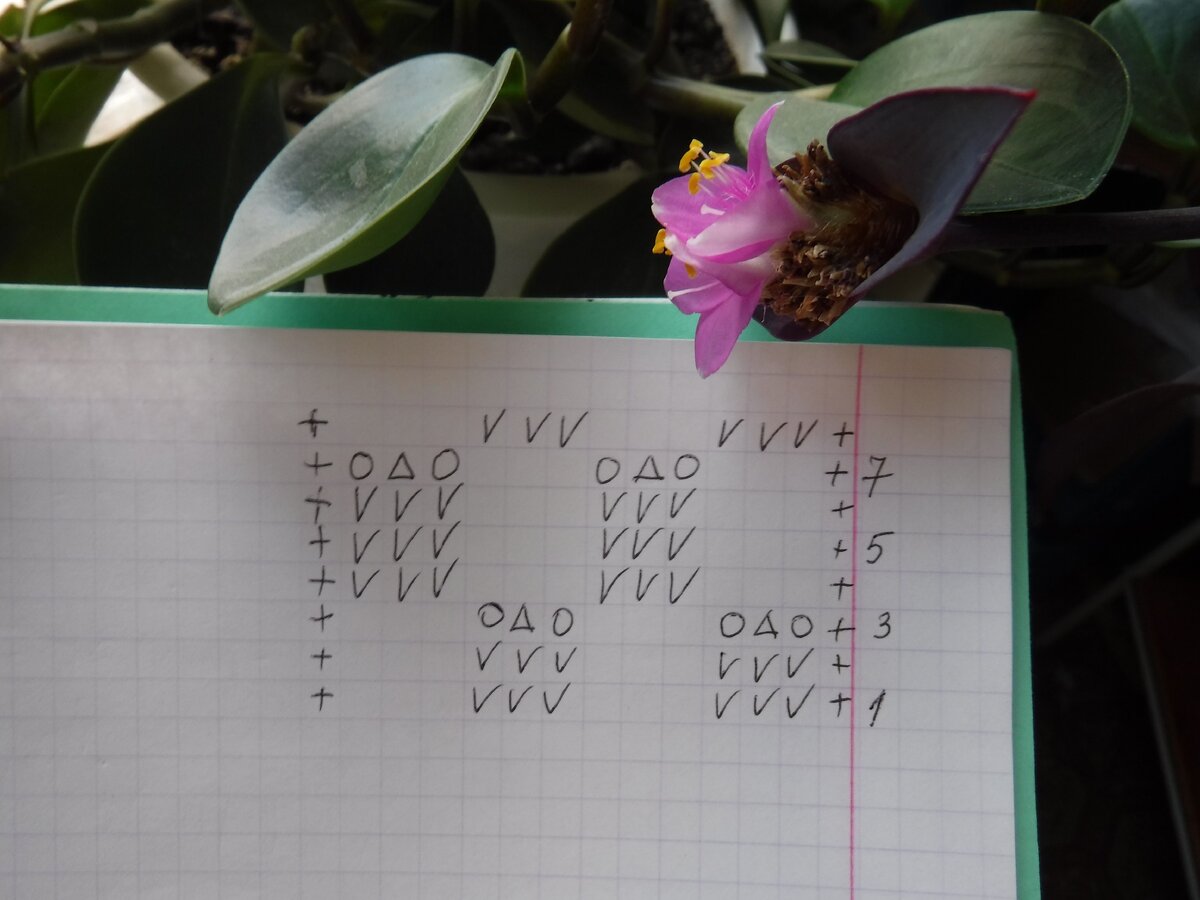 + V V V V V V +
+ O Δ O O Δ O + 7
+ V V V V V V +
+ V V V V V V + 5
+ V V V V V V +
+ O Δ O O Δ O + 3
+ V V V V V V +
+ V V V V V V + 1